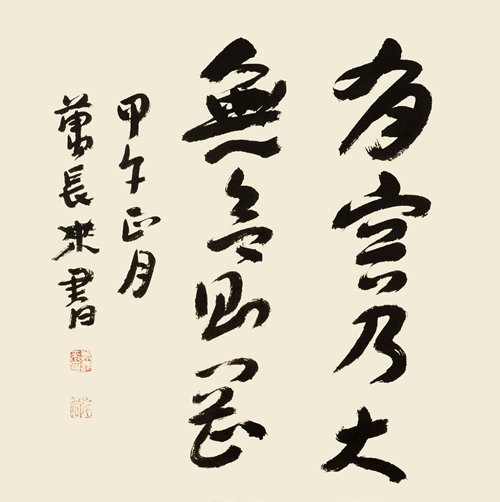 有容乃大
無欲則剛
甲午正月
蕭長書